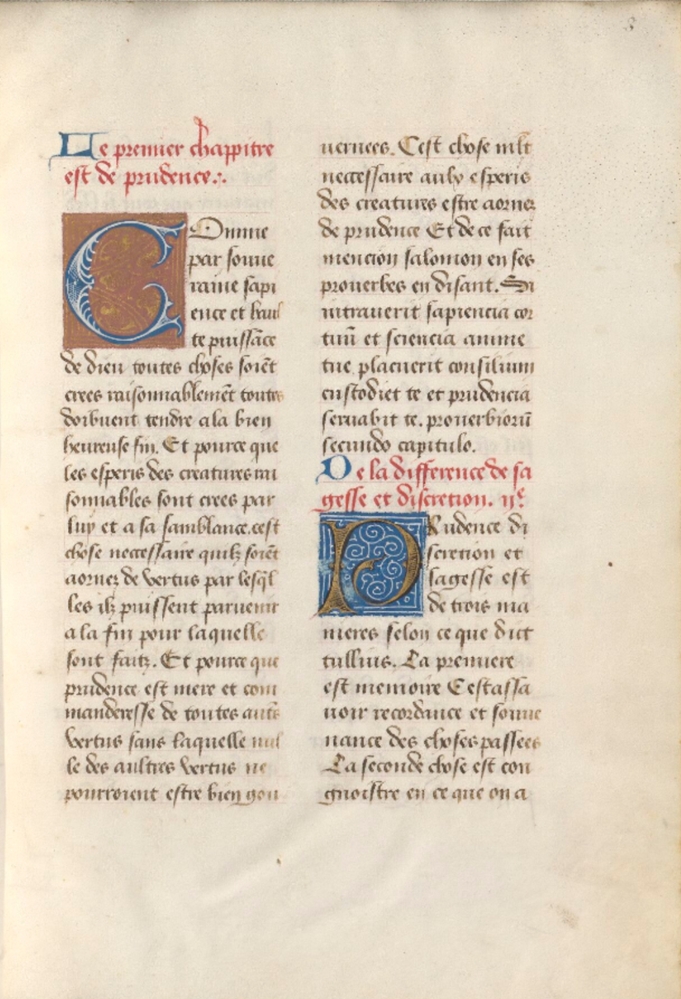 3
Le premier chappitre
est de prudence.:.
COmme
par souve
raine sapi
ence et haul
te puissāce
de dieu toutes choses soiēt
crees raisonnablemēt toutes
doibuent tendre a la bien
heureuse fin. Et pource que
les esperis des creatures rai
sonnables sont crees par
luy et a sa samblance. cest
chose necessaire quilz soiēt
aornez de vertus par lesq̄l
les ilz puissent parvenir
a la fin pour laquelle
sont faitz. Et pource que
prudence est mere et com
manderesse de toutes aut͛s
vertus sans laquelle nul
le des aultres vertus ne
pourroient estre bien gou
vernees. Cest chose mlt
necessaire aulx esperis
des creatures estre aornez
de prudence Et de ce fait
mencion salomon en ses
prouerbes en disant. Si
intraverit sapiencia cor
tuū et sciencia anime
tue placuerit consilium
custodiet te et prudencia
servabit te. prouerbiorū
secundo capitulo.
De la difference de sa
gesse et discretion. ijᵉ.
PRudence di
scretion et
sagesse est
de trois ma
nieres selon ce que dict
tullius. La premiere
est memoire Cestassa
uoir recordance et souue
nance des choses passees
La seconde chose est con
gnoistre en ce que on a